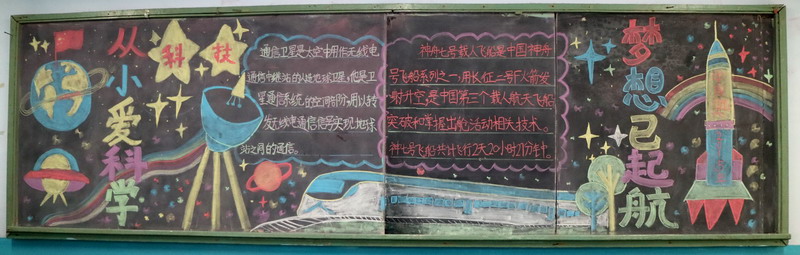 从小爱科学
科技
通信卫星是太空中用作无线电
通信中继站的人造地球卫星,他是卫
星通信系统的空间部分,用以转
发无线电通信信号实现地球
站之间的通信。
神舟七号载人飞船是中国神舟
号飞船系列之一,用长征二号F火箭发
射升空,是中国第三个载人航天飞船
突破和掌握出舱活动相关技术。
神七号飞船共计飞行2天20小时27分钟。
梦想已起航